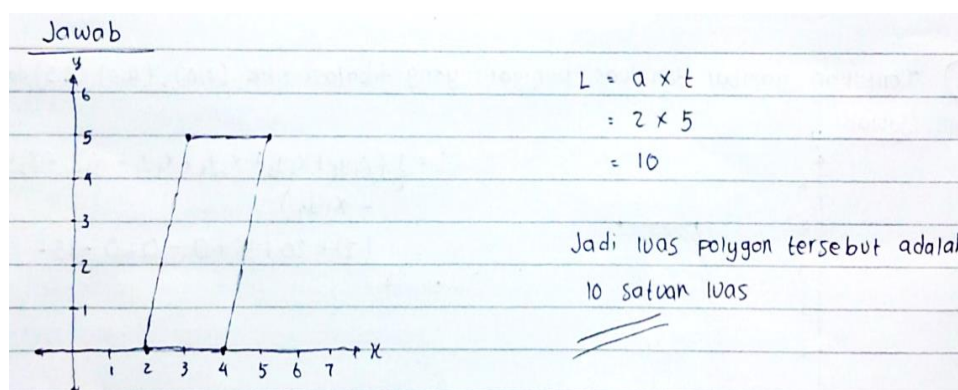 Jawab
y
6
5
4
3
2
1
1 2 3 4 5 6 7 x
L = a x t
= 2 x 5
= 10
Jadi luas polygon tersebut adalah
10 satuan luas